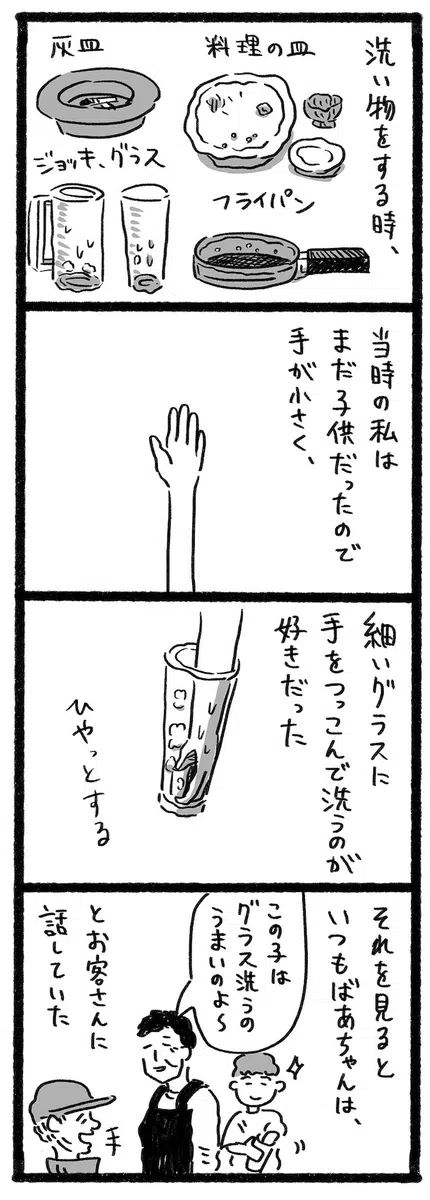 洗い物をする時、
料理の皿
灰皿
ジョッキ、グラス
フライパン
当時の私は
まだ子供だったので
手が小さく、
細いグラスに
手をつっこんで洗うのが
好きだった
ひやっとする
それを見ると
いつもばあちゃんは、
この子は
グラス洗うの
うまいのよ〜
とお客さんに
話していた
手